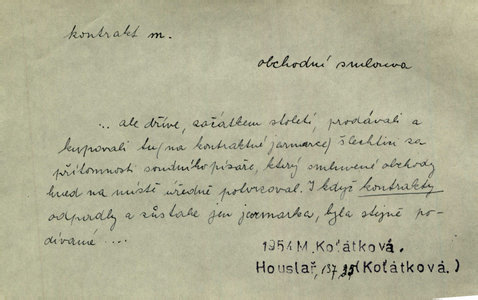 kontrakt m.
obchodní smlouva
... ale dříve, začátkem století, prodávali a
kupovali tu (na kontraktné jarmarce) šlechtici za
přítomnosti soudního písaře, který smluvené obchody
hned na místě úředně potvrzoval. I když kontrakty
odpadly a zůstala jen jarmarka, byla stejně po-
dívaná ....
1954 M. Koťátková.
Houslař, 137, 35 (Koťátková.)